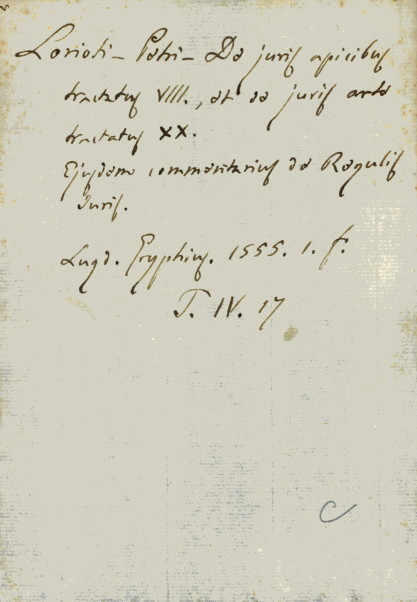 Lorioti - Petri - De juris apicibus
tractatus VIII., et de juris arte
tractatus XX.
Ejusdem commentarius de Regulis
Juris.
Lugd. Gryphius. 1555. 1. f.
T. IV. 17
C